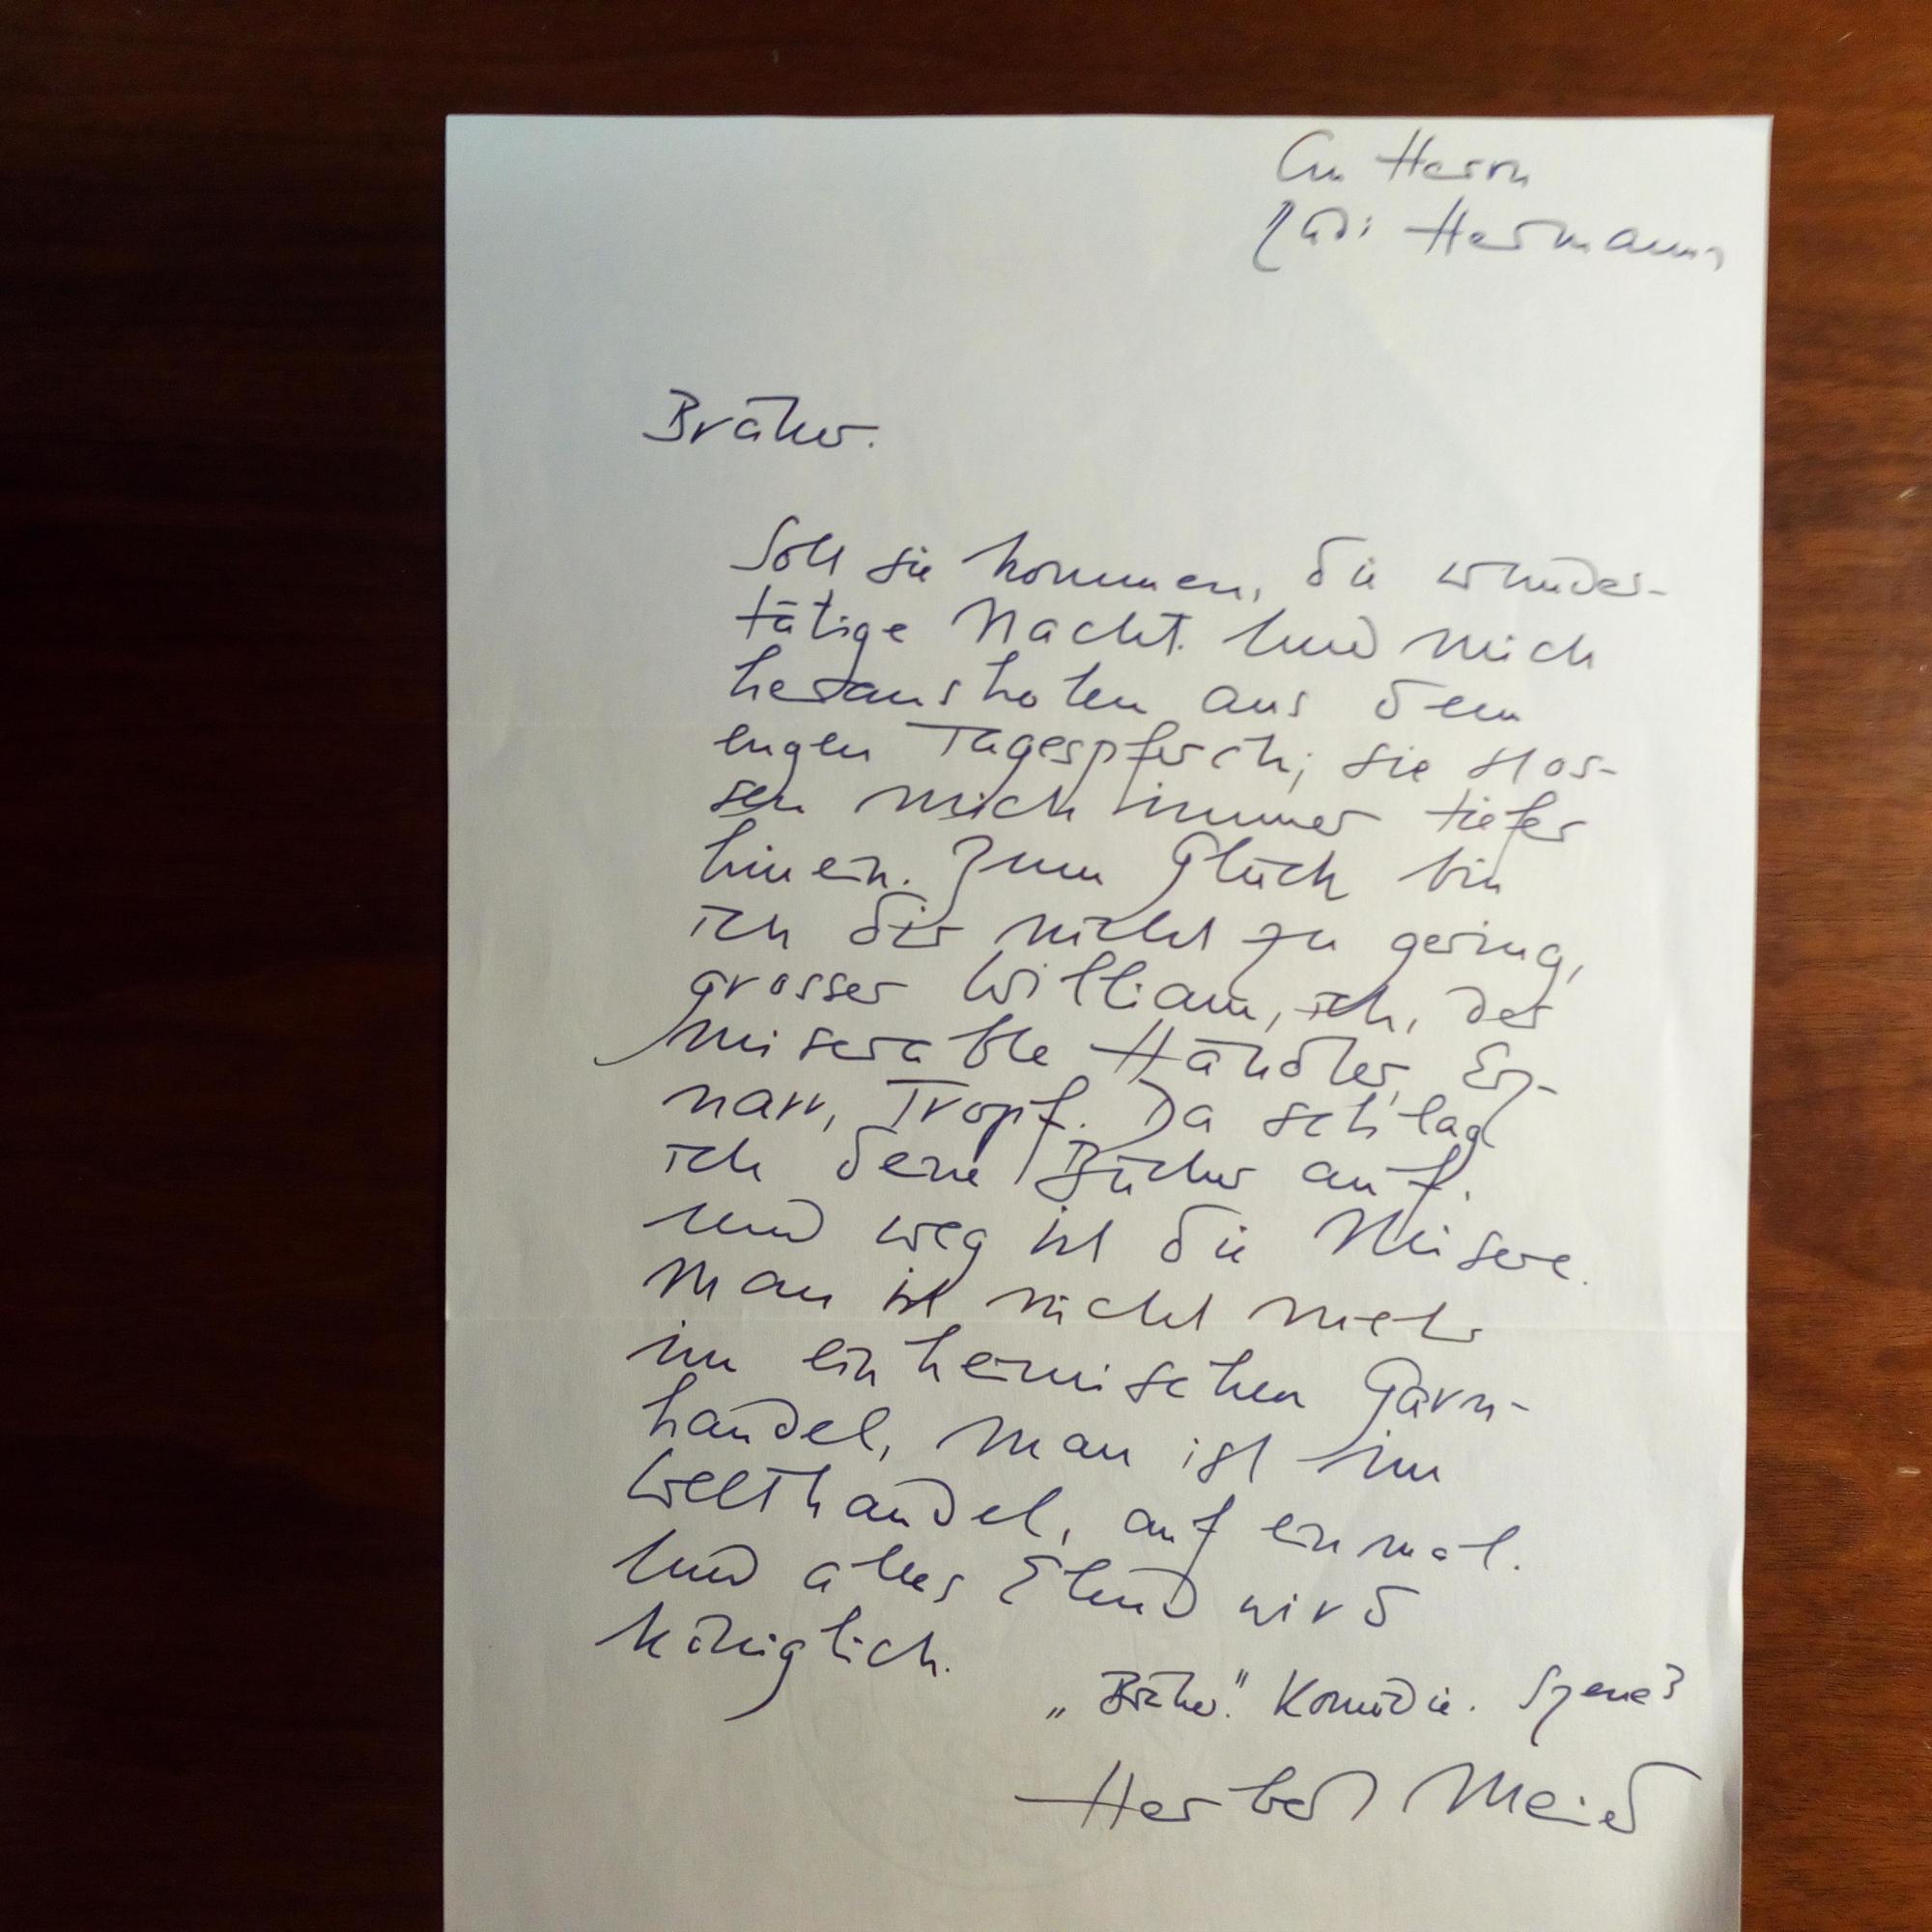 An Herrn
Hermann
Bräker.
Soll sie kommen, die wunder-
tätige Nacht. Und mich
herausholen aus dem
engen Tagespferch; sie stos-
sen mich immer tiefer
hinein. Zum Glück bin
ich dir nicht zu gering,
grosser William, ich, der
miserable Händler, Erz-
narr, Tropf. Da schlag
ich deine Bücher auf.
Und weg ist die Misere.
Man ist nicht mehr
im einheimischen Garn-
handel, man ist im
Welthandel, auf einmal.
Und alles Elend wird
königlich.
„Bräker." Komödie. Szene 3
Herbert Meier